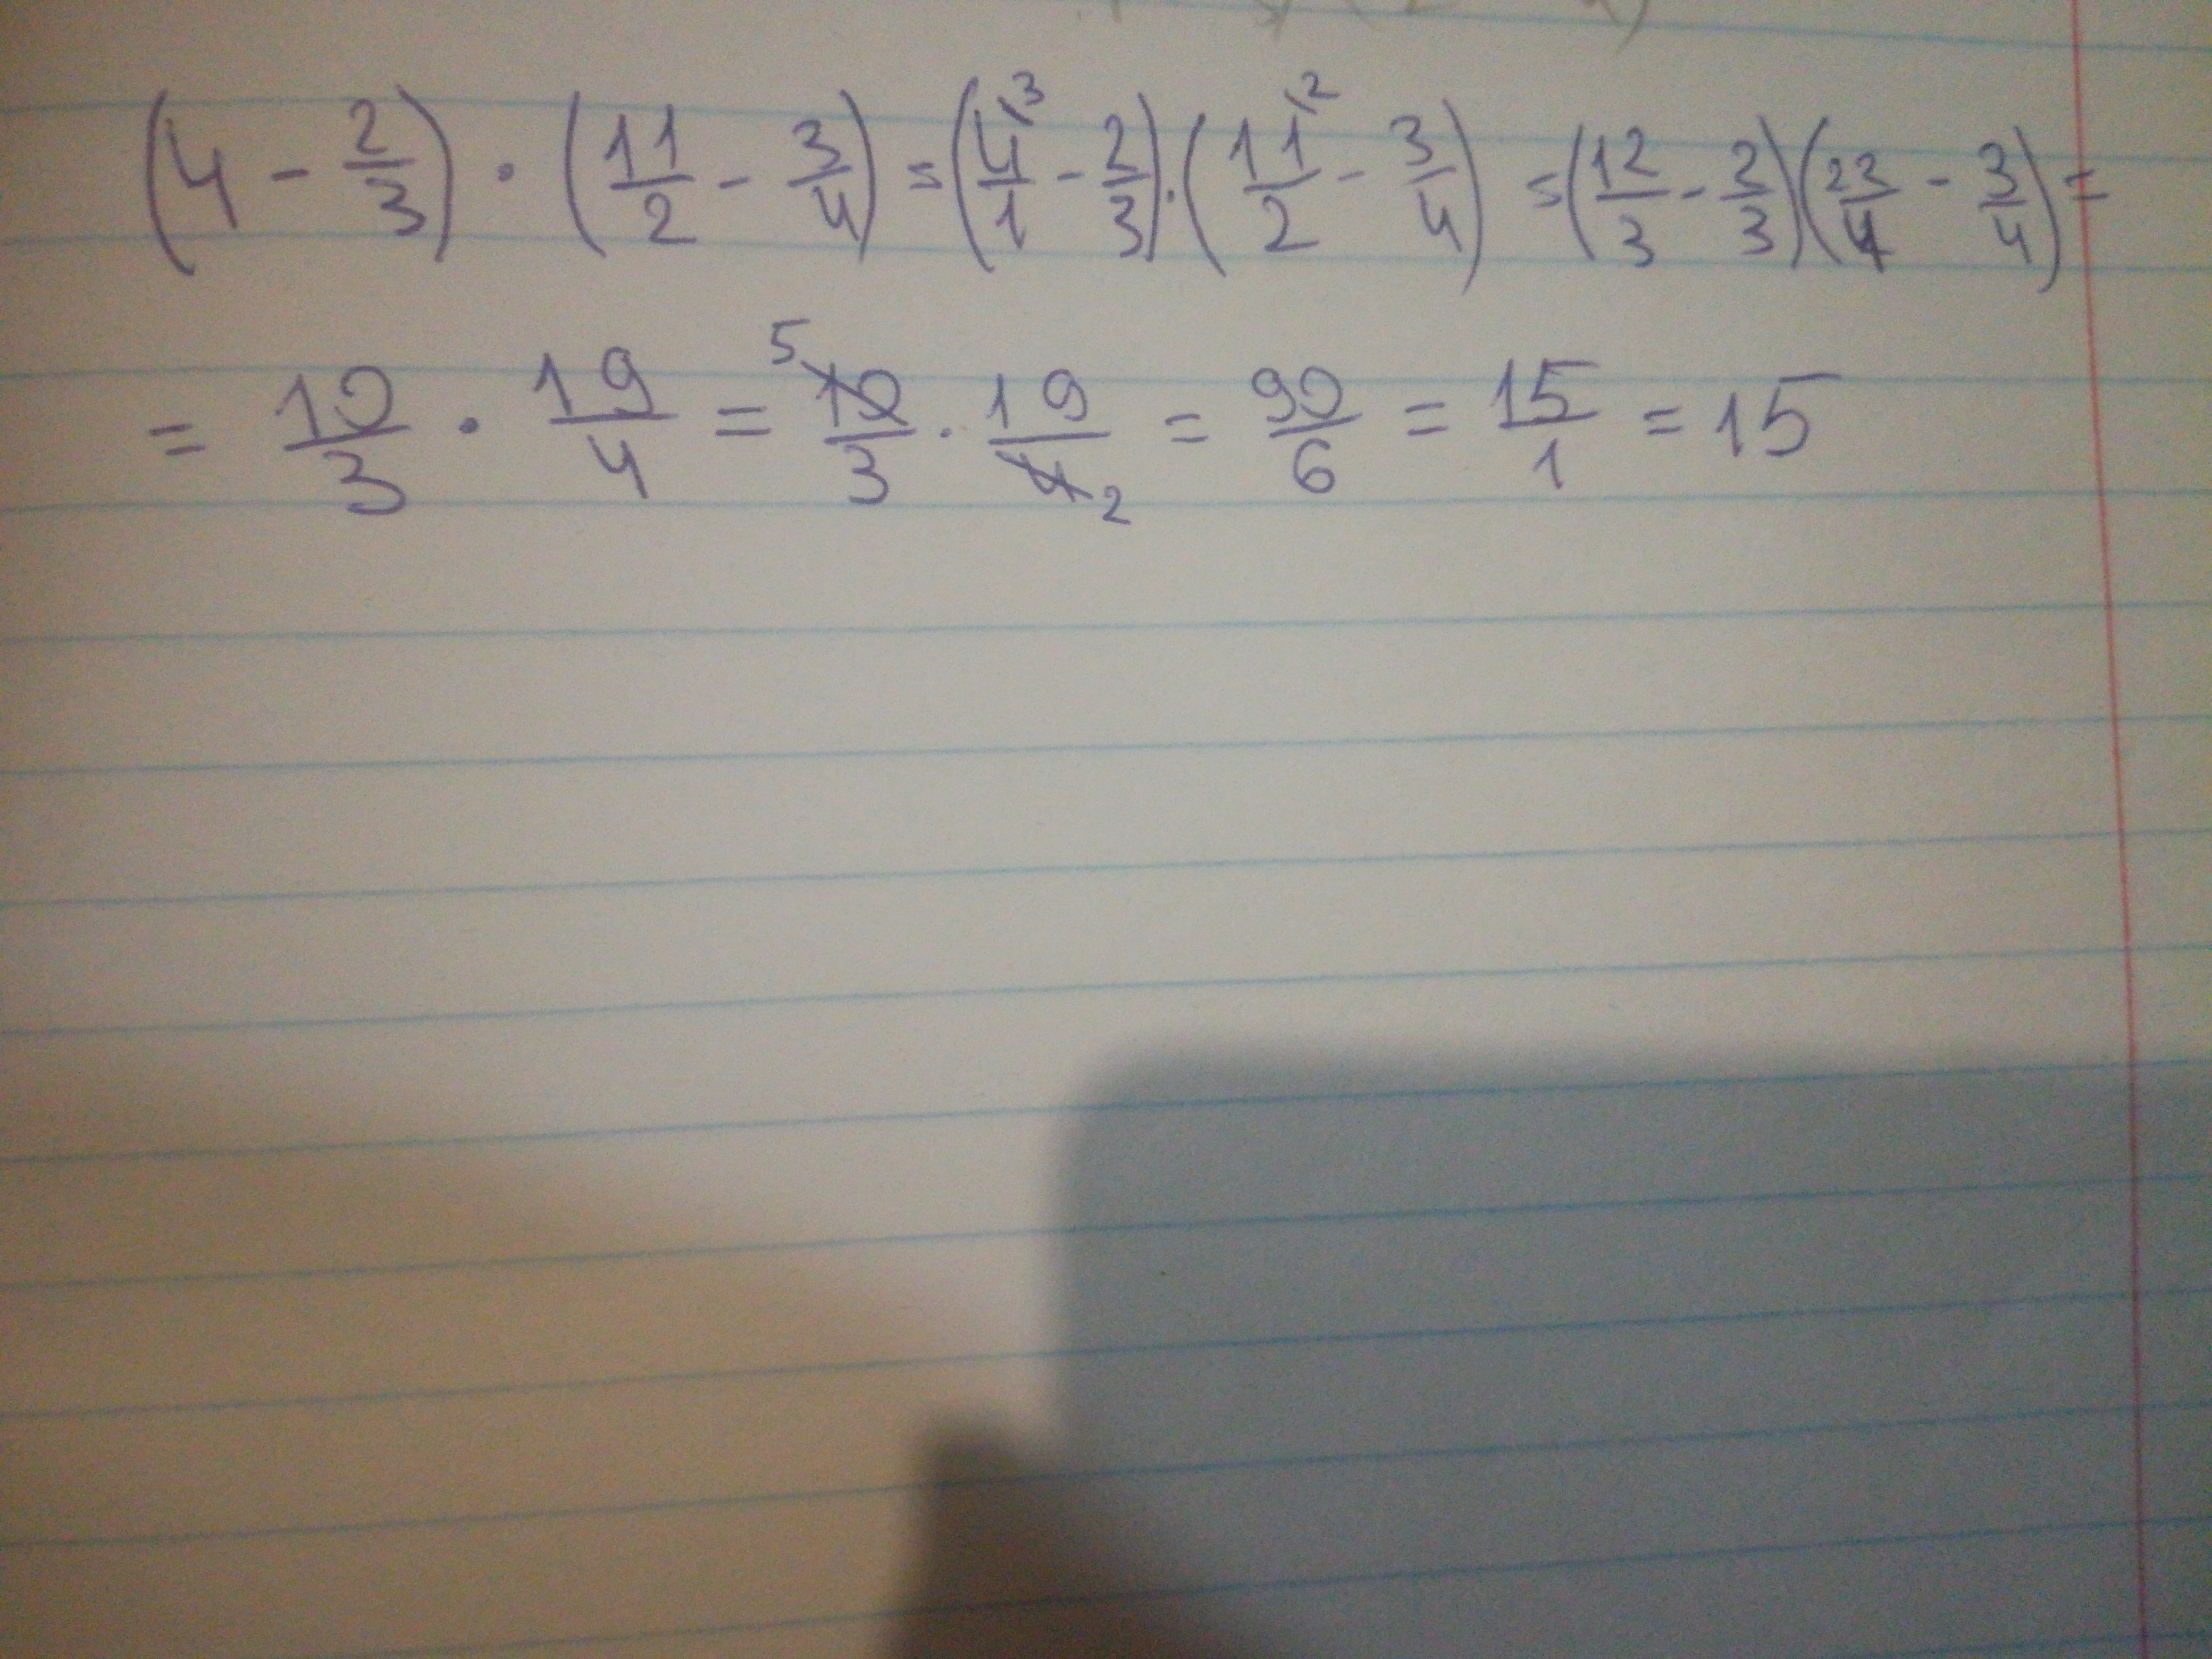 (4 - 2/3) · (11/2 - 3/4) = (4\3/1 - 2/3) · (11\2/2 - 3/4) = (12/3 - 2/3)(23/4 - 3/4) =
= 10/3 · 19/4 = 5 10/3 · 19/4 2 = 90/6 = 15/1 = 15